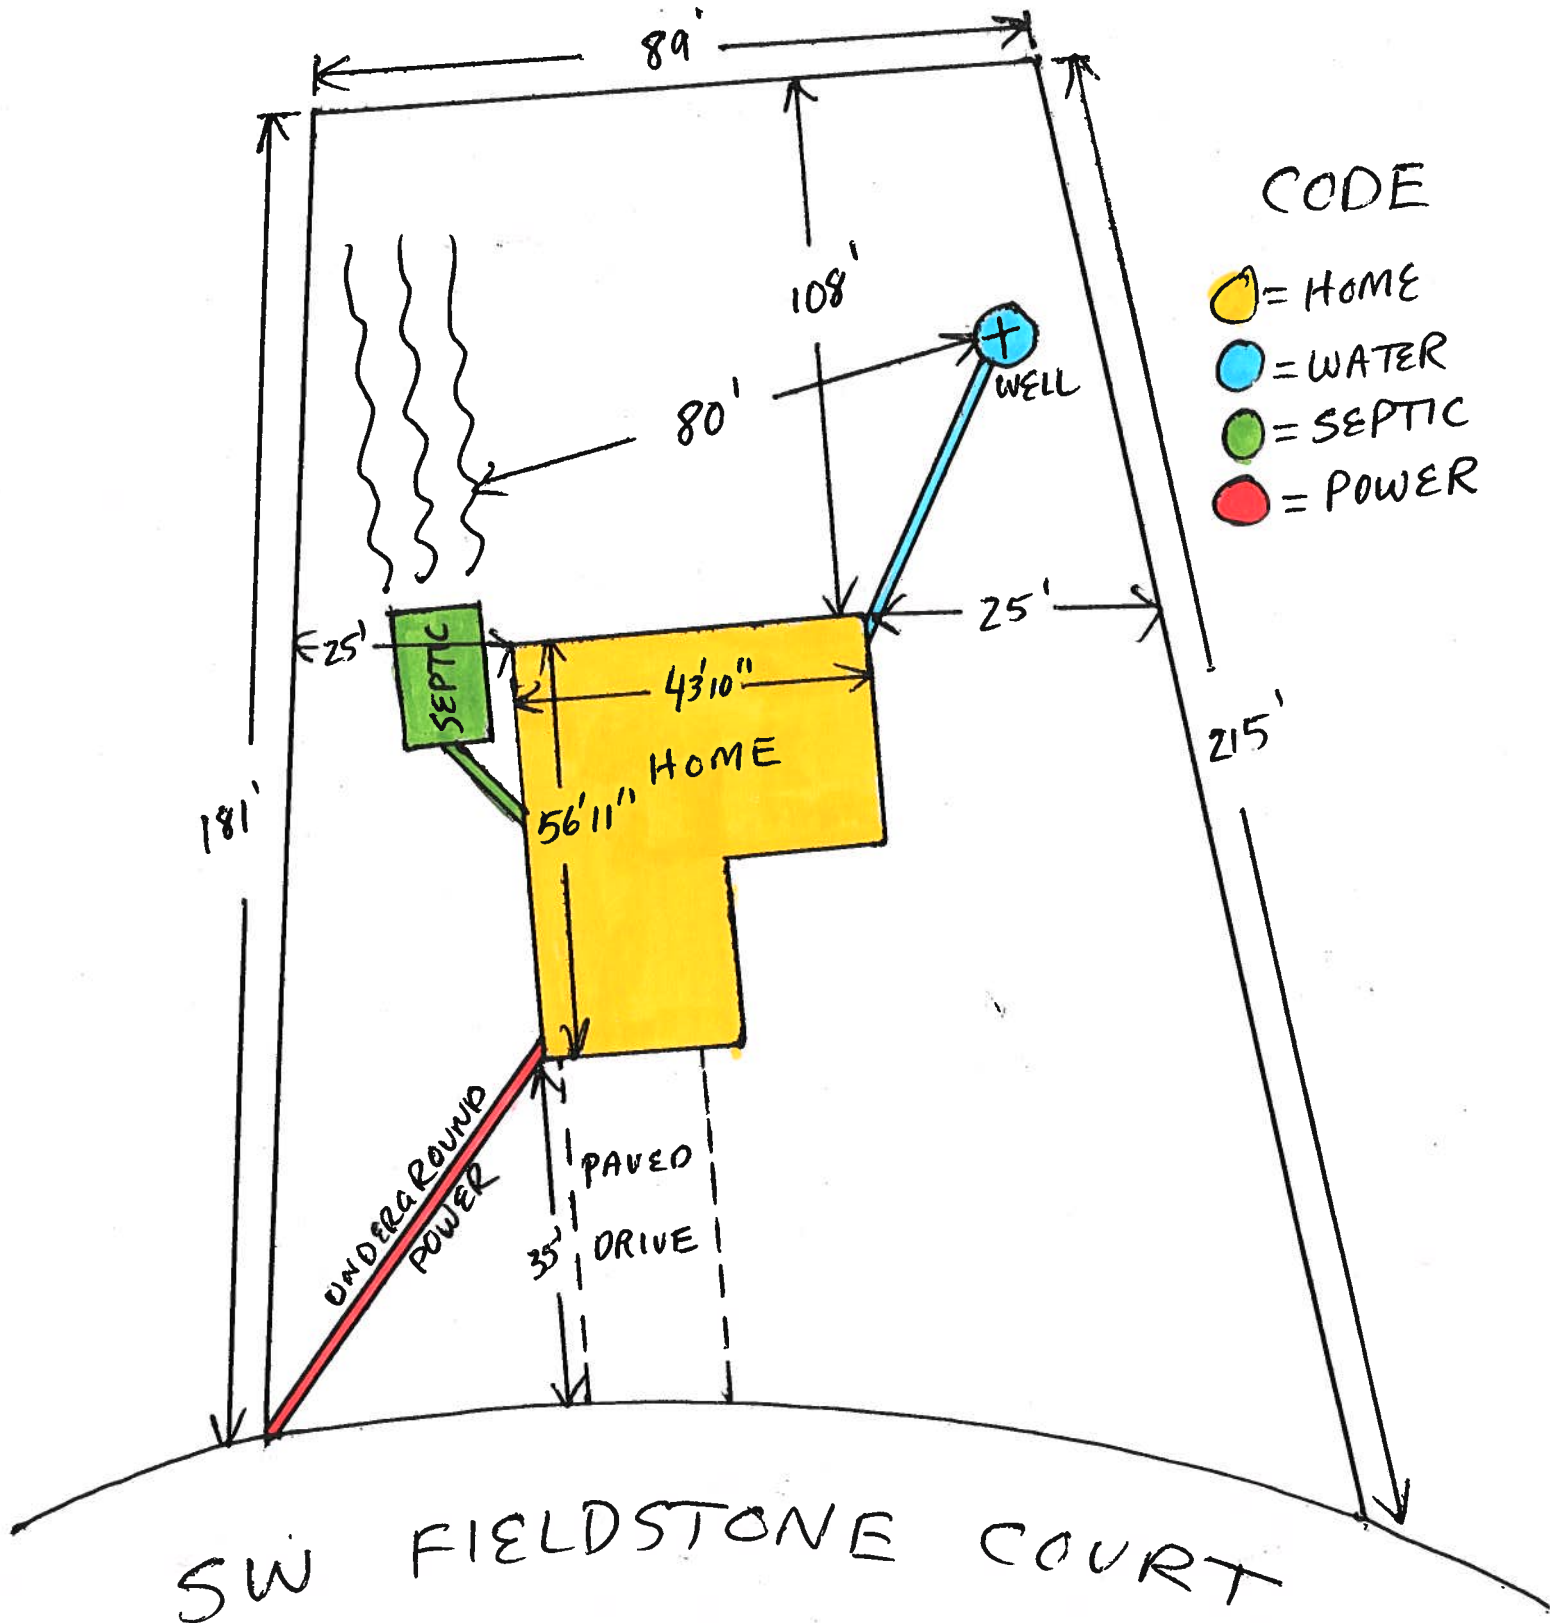 89'
CODE
= HOME
= WATER
= SEPTIC
= POWER
108'
WELL
80'
25'
25'
SEPTIC
43'10"
HOME
56'11"
215'
181'
UNDERGROUND
POWER
PAVED
DRIVE
35'
SW FIELDSTONE COURT